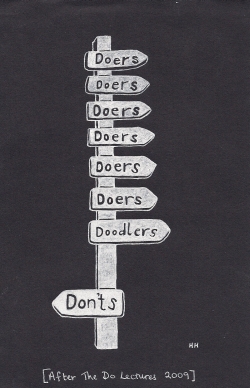 Doers
Doers
Doers
Doers
Doers
Doers
Doodlers
Don'ts
HH
[After The Do Lectures 2009]